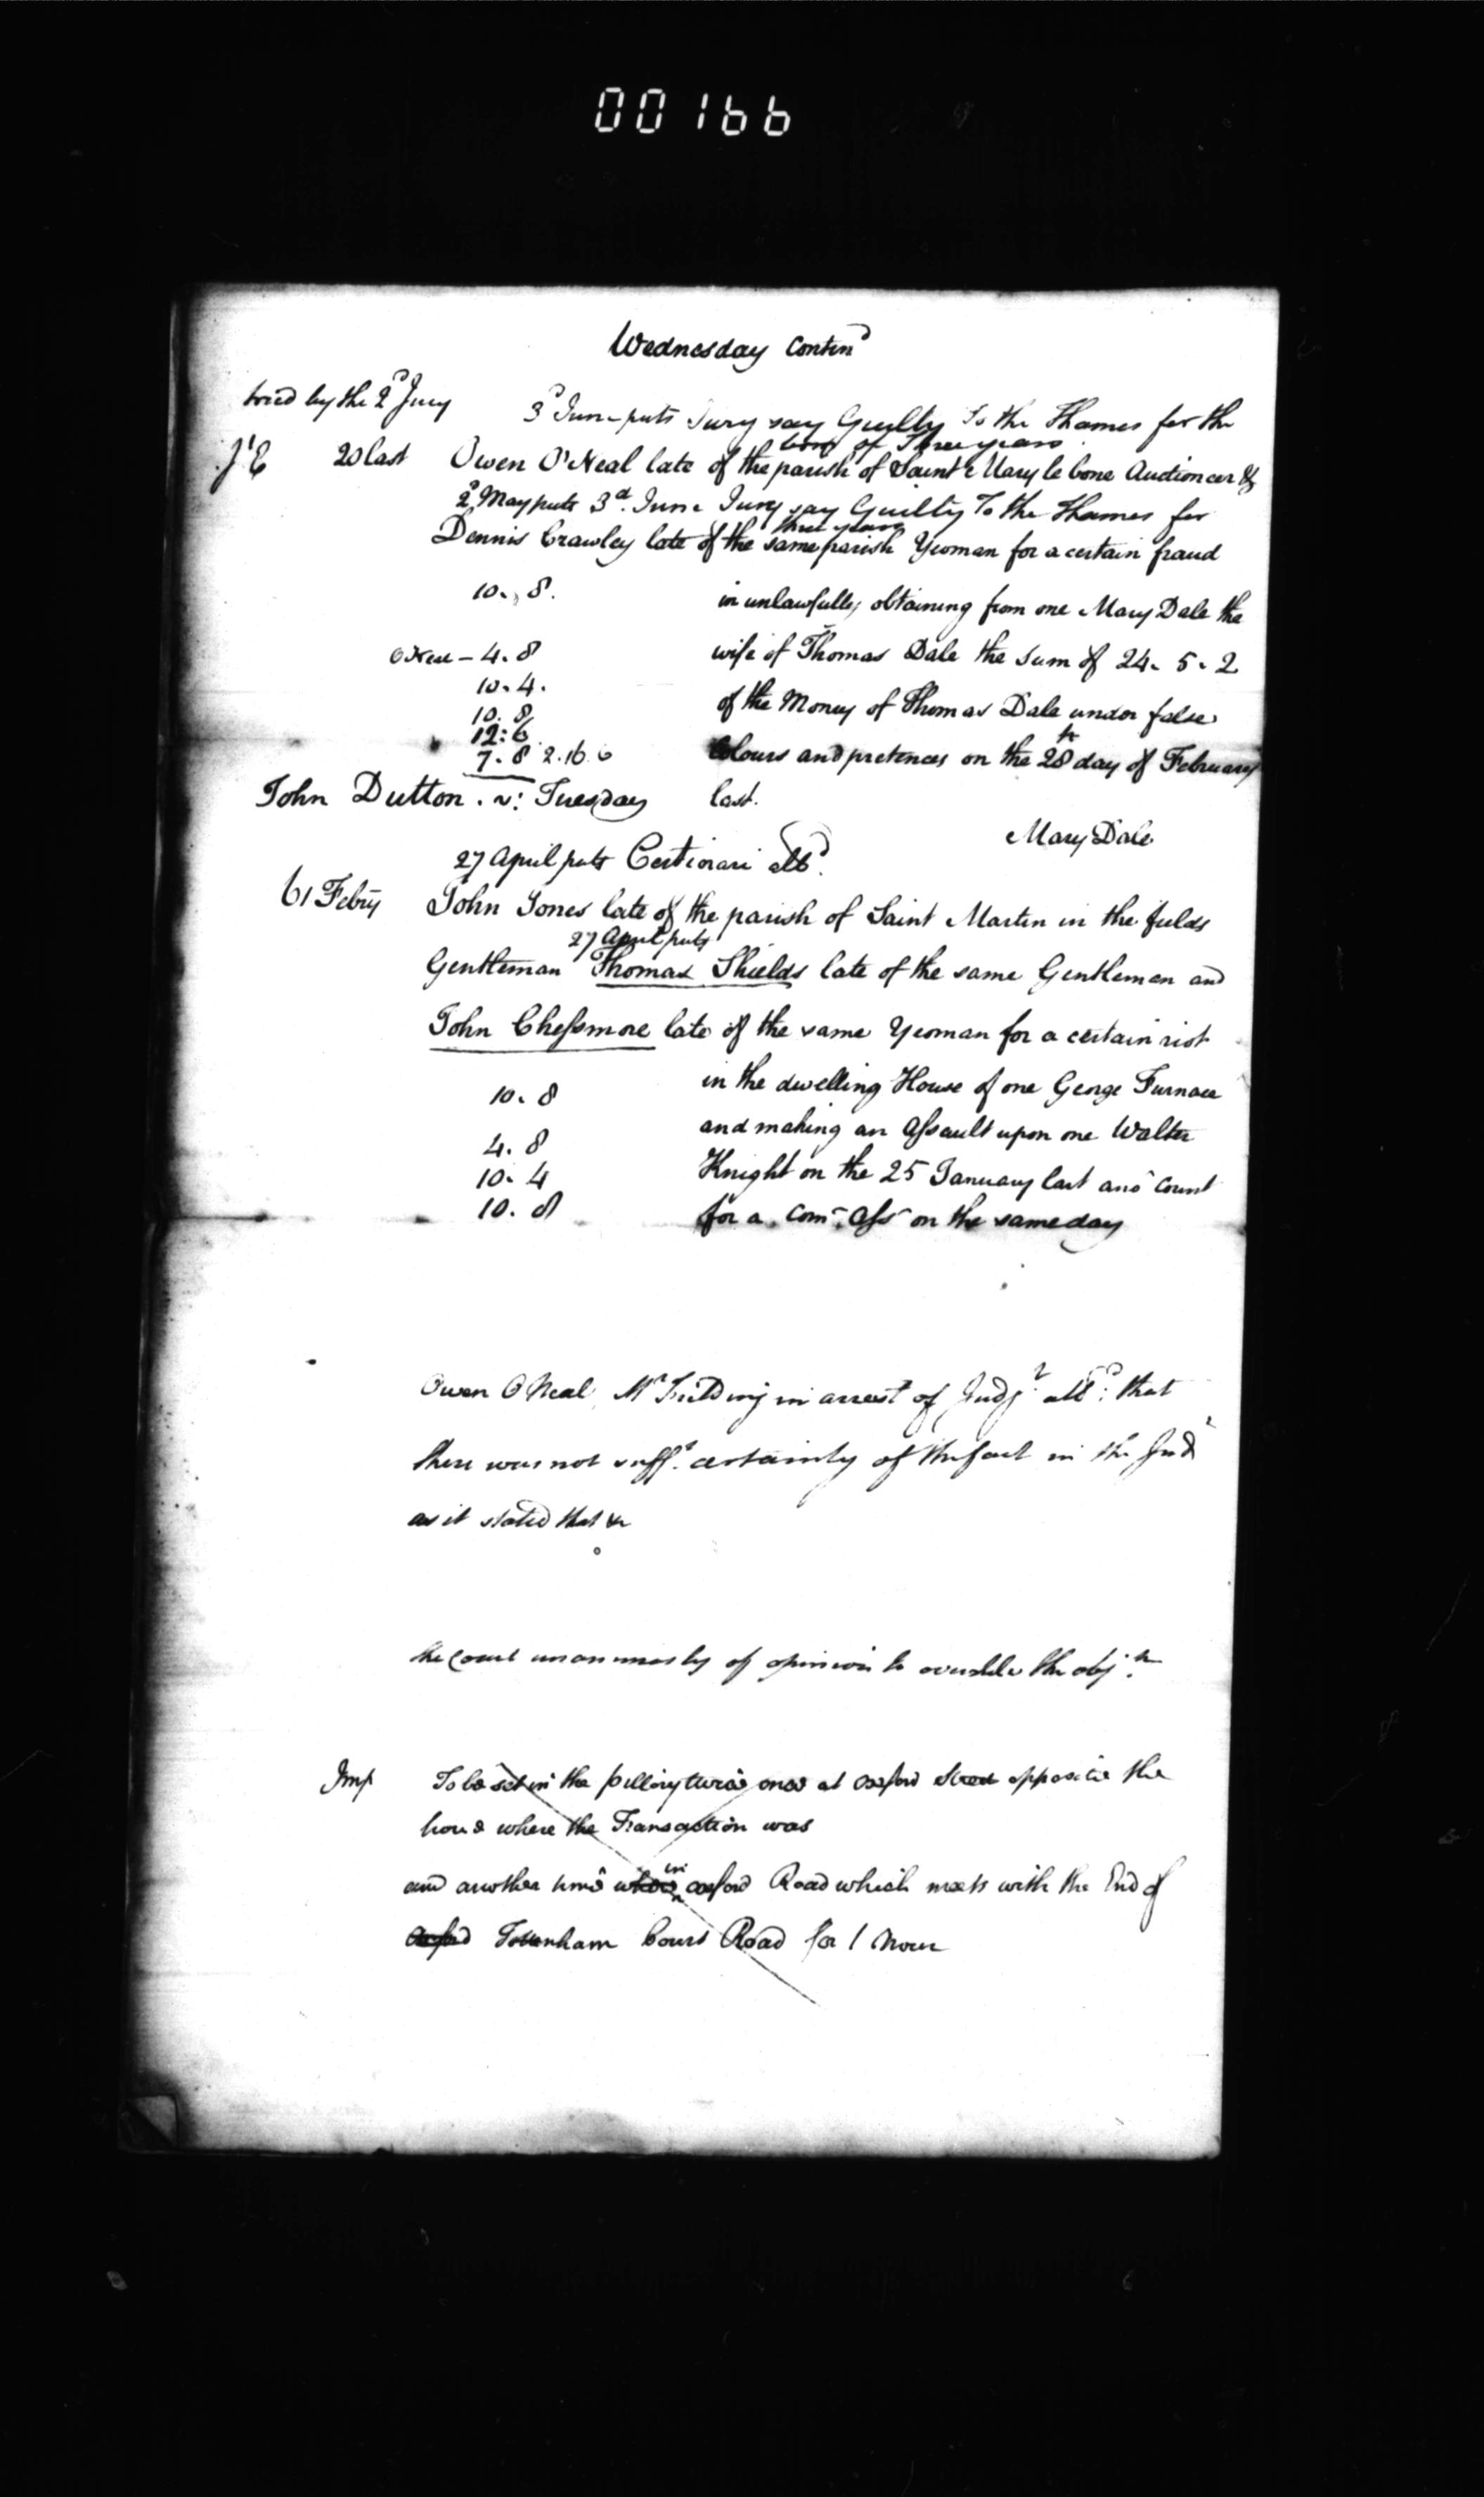 00166
Wednesday Contind
tried by the 2d Jury
3d June puts Jury say Guilty To the Thames for the
term of Three years
20 last Owen O'Neal late of the parish of Saint Mary le bone Auctioneer &
2d May puts 3d. June Jury say Guilty To the Thames for
three years
Dennis Crawley late of the same parish Yeoman for a certain fraud
10. 8. in unlawfully obtaining from one Mary Dale the
O Neal - 4. 8 wife of Thomas Dale the Sum of 24. 5. 2
10. 4.
10. 8 of the Money of Thomas Dale under false
12: 6
7. 8 2. 16. 6 Colours and pretences on the 28th day of February
John Dutton . v: Tuesday last.
Mary Dale
27 April puts Certiorari alld.
61 Febry John Jones late of the parish of Saint Martin in the fields
27 April puts
Gentleman Thomas Shields late of the same Gentleman and
John Chessmore late of the same Yeoman for a certain riot
10. 8 in the dwelling House of one George Furnace
4. 8 and making an Assault upon one Walter
10. 4 Knight on the 25 January last anor Count
10. 8 for a Com: Ass on the same day
Owen O Neal Mr Fielding in arrest of Judgt. : that
there was not sufft. certainty of the fact in the Indt
as it stated that &c
the Court unanimously of opinion to overule the objn.
Imp To be set in the pillory twice once at oxford Street opposite the
house where the Transaction was
and another time in oxford Road which meets with the End of
oxford Tottenham Court Road for 1 hour